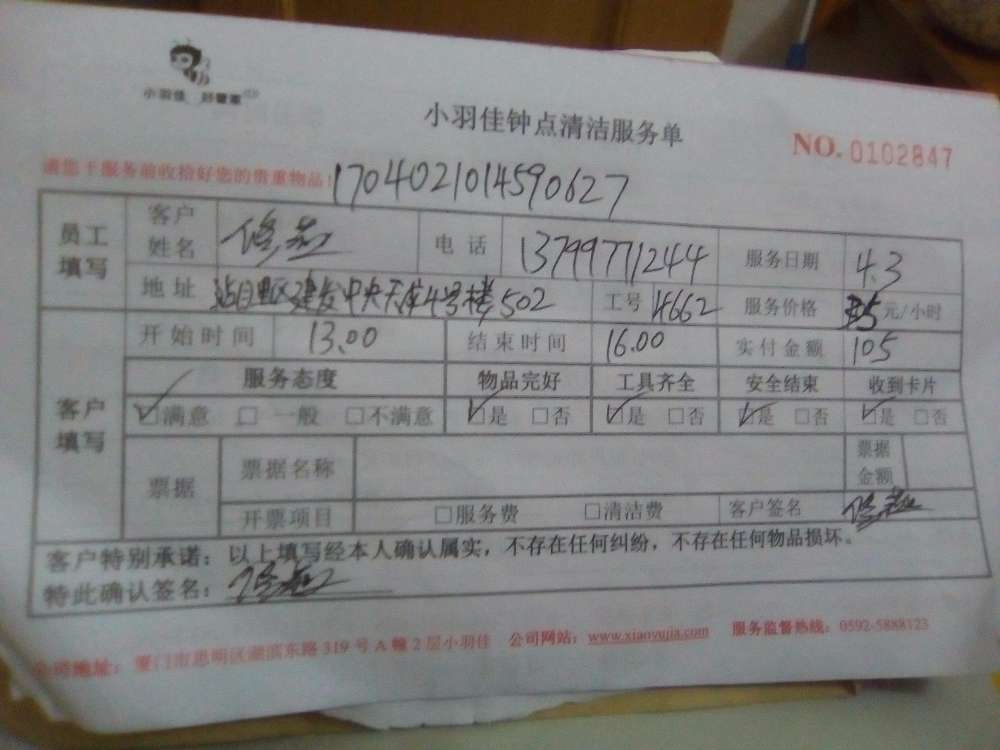 小羽佳 好管家
小羽佳钟点清洁服务单
NO. 0102847
请您于服务前收拾好您的贵重物品: 1704021014590627
员工填写 客户姓名 电话 13799771244 服务日期 4.3
地址 建发中央天座4号楼502 工号 4662 服务价格 35元/小时
开始时间 13.00 结束时间 16.00 实付金额 105
客户填写 服务态度 物品完好 工具齐全 安全结束 收到卡片
☑满意 □一般 □不满意 ☑是 □否 ☑是 □否 ☑是 □否 ☑是 □否
票据 票据名称 票据金额
开票项目 □服务费 □清洁费 客户签名
客户特别承诺：以上填写经本人确认属实，不存在任何纠纷，不存在任何物品损坏。
特此确认签名：
公司地址：厦门市思明区湖滨东路319号A幢2层小羽佳 公司网站：www.xiaoyujia.com 服务监督热线：0592-5888123